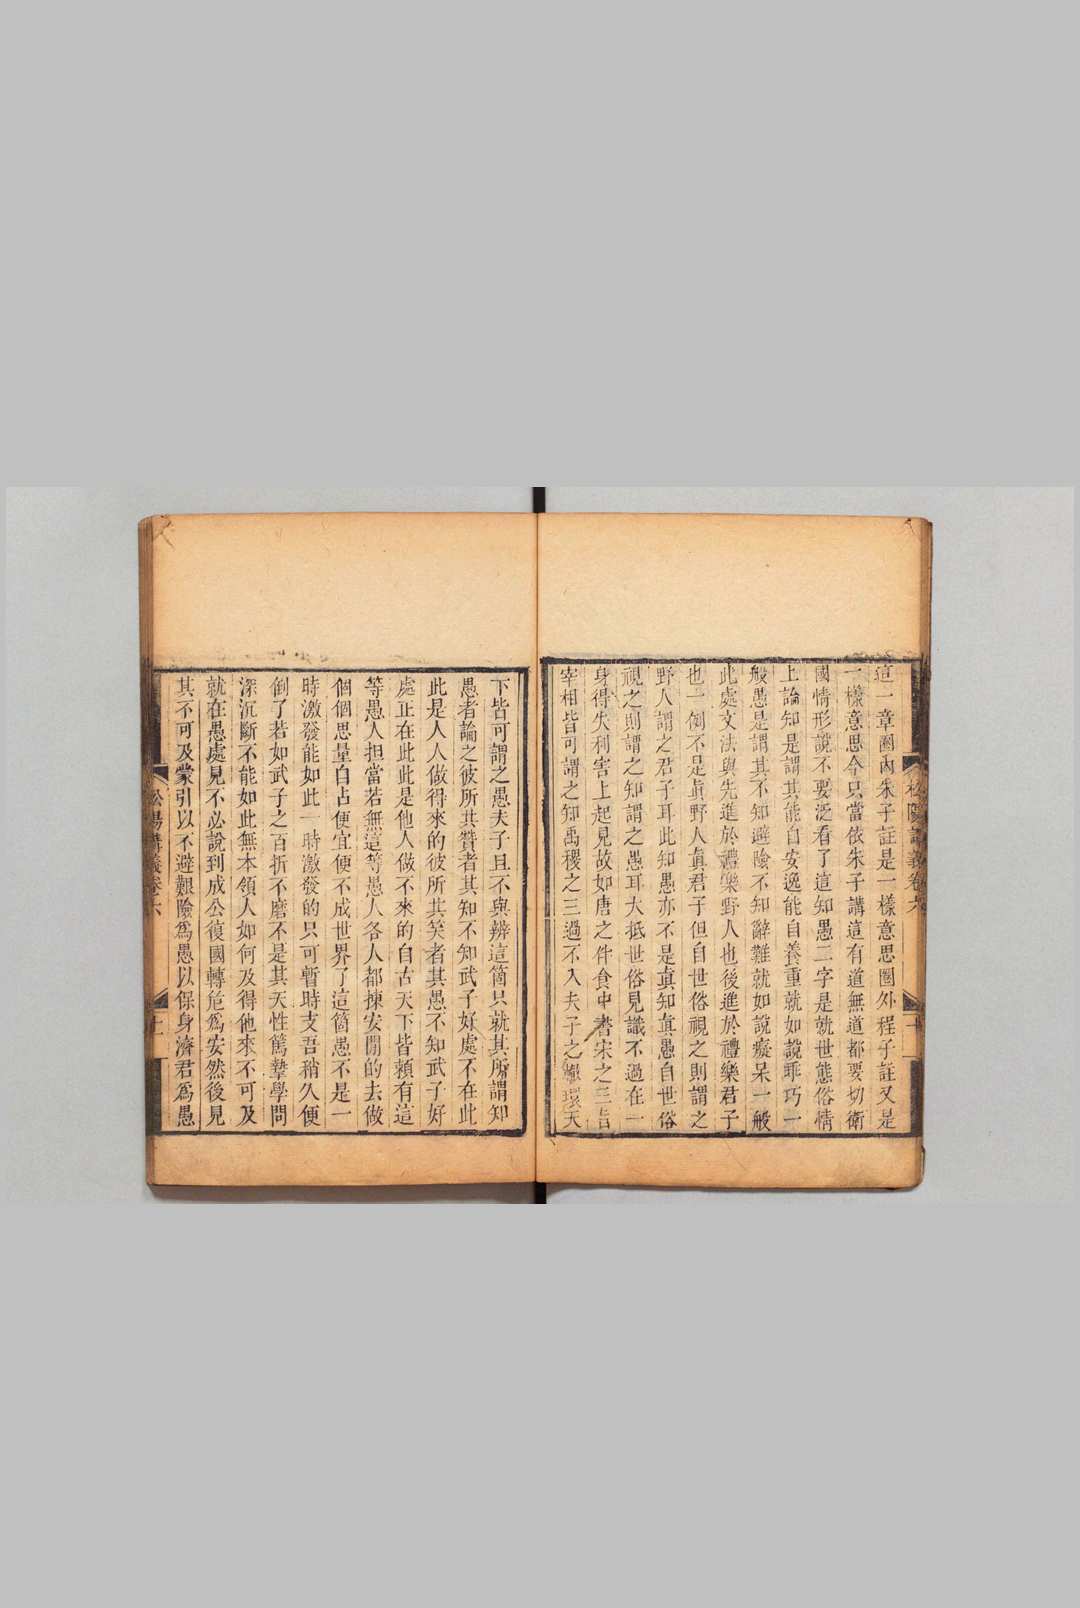 這一章圈內朱子註是一樣意思圈外程子註又是
一樣意思今只當依朱子講這有道無道都要切衛
國情形說不要泛看了這知愚二字是就世態俗情
上論知是謂其能自安逸能自養重就如說乖巧一
般愚是謂其不知避險不知辭難就如說癡呆一般
此處文法與先進於禮樂野人也後進於禮樂君子
也一例不是眞野人眞君子但自世俗視之則謂之
野人謂之君子耳此知愚亦不是眞知眞愚自世俗
視之則謂之知謂之愚耳大抵世俗見識不過在一
身得失利害上起見故如唐之伴食中書宋之三旨
宰相皆可謂之知禹稷之三過不入夫子之轍環天
松陽講義卷六
下皆可謂之愚夫子且不與辨這箇只就其所謂知
愚者論之彼所共贊者其知不知武子好處不在此
此是人人做得來的彼所共笑者其愚不知武子好
處正在此此是他人做不來的自古天下皆賴有這
等愚人担當若無這等愚人各人都揀安閒的去做
個個思量自占便宜便不成世界了這箇愚不是一
時激發能如此一時激發的只可暫時支吾稍久便
倒了若如武子之百折不磨不是其天性篤摯學問
深沉斷不能如此無本領人如何及得他來不可及
就在愚處見不必說到成公復國轉危爲安然後見
其不可及蒙引以不避艱險爲愚以保身濟君爲愚
松陽講義卷六
十一